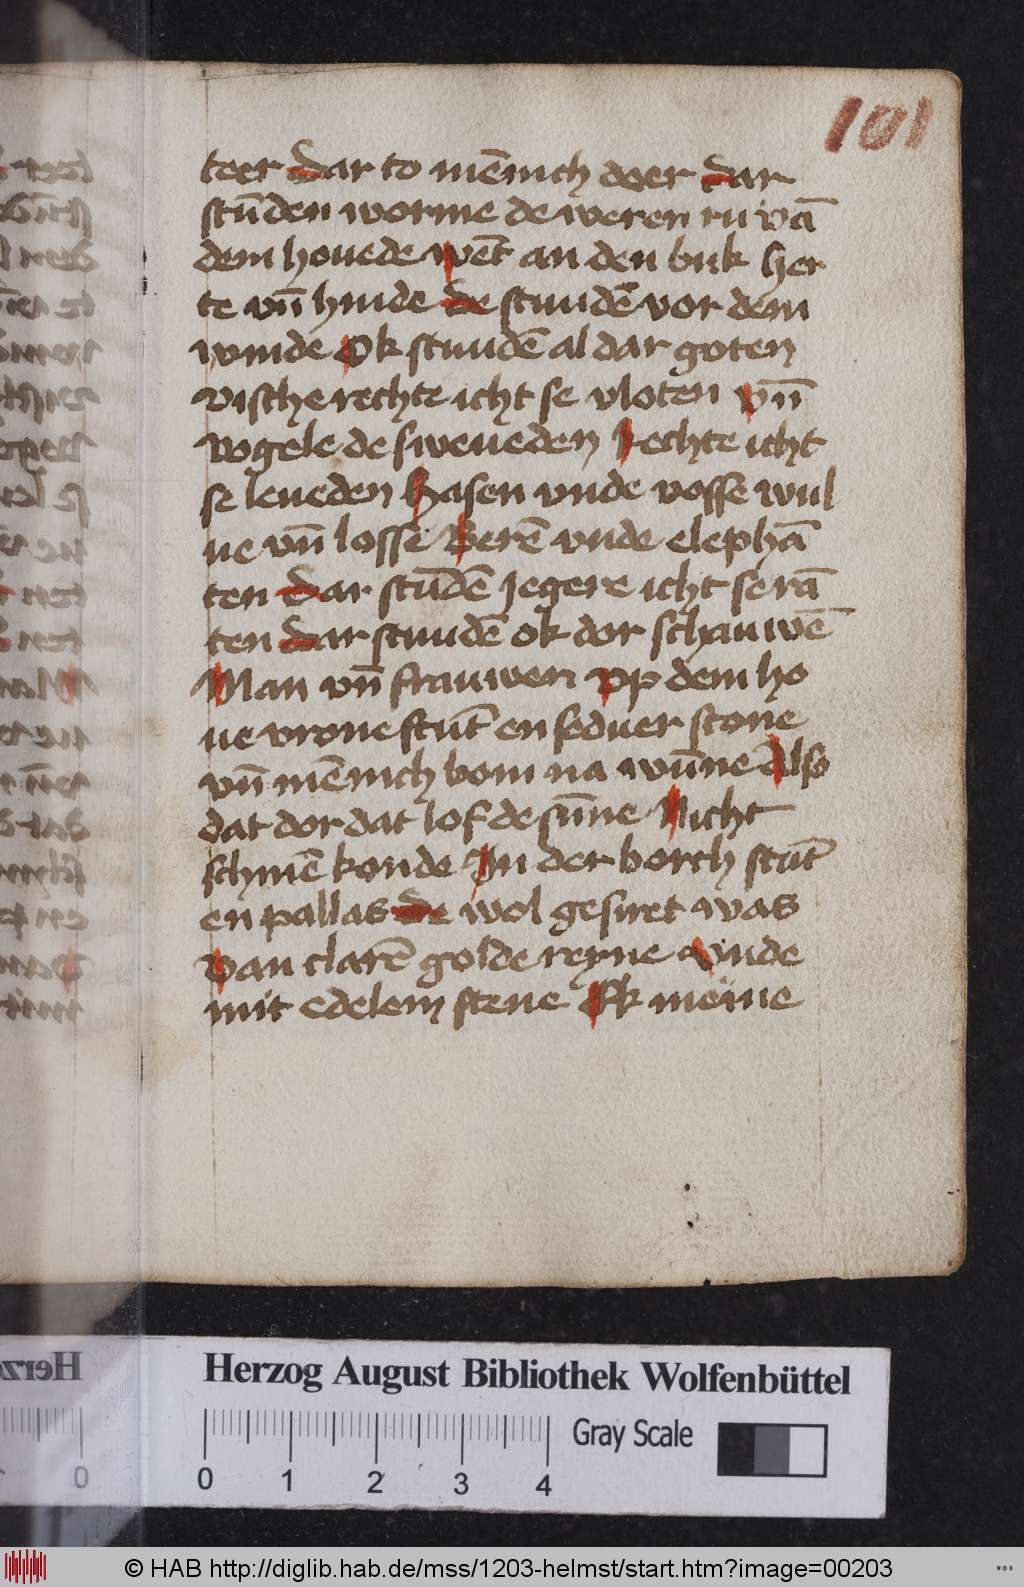 101
teer dar to mēnich deer dar
stūden worme de weren ru vā
dem houede wēt an den buk her
te vn̄ hinde de stundē vor dem
winde Ok stundē al dar goten
vische rechte icht se vloten vn̄
vogele de sweueden Rechte icht
se leueden Hasen vnde vosse wul
ue vn̄ losse Berē vnde elephā
ten dar stūdē Jegere icht se rā
ten dar stundē ok dor schauwē
Man vn̄ frauwen vp dem ho
ue vrone stūt en seduer stone
vn̄ mēnich bom na wūne Also
dat dor dat lof de sūne Nicht
schinē konde In der borch stūt
en pallas de wol gesiret was
Van clarē golde reyne vnde
mit edelem stene Ok meine
Herzog August Bibliothek Wolfenbüttel
0 1 2 3 4
Gray Scale
© HAB http://diglib.hab.de/mss/1203-helmst/start.htm?image=00203